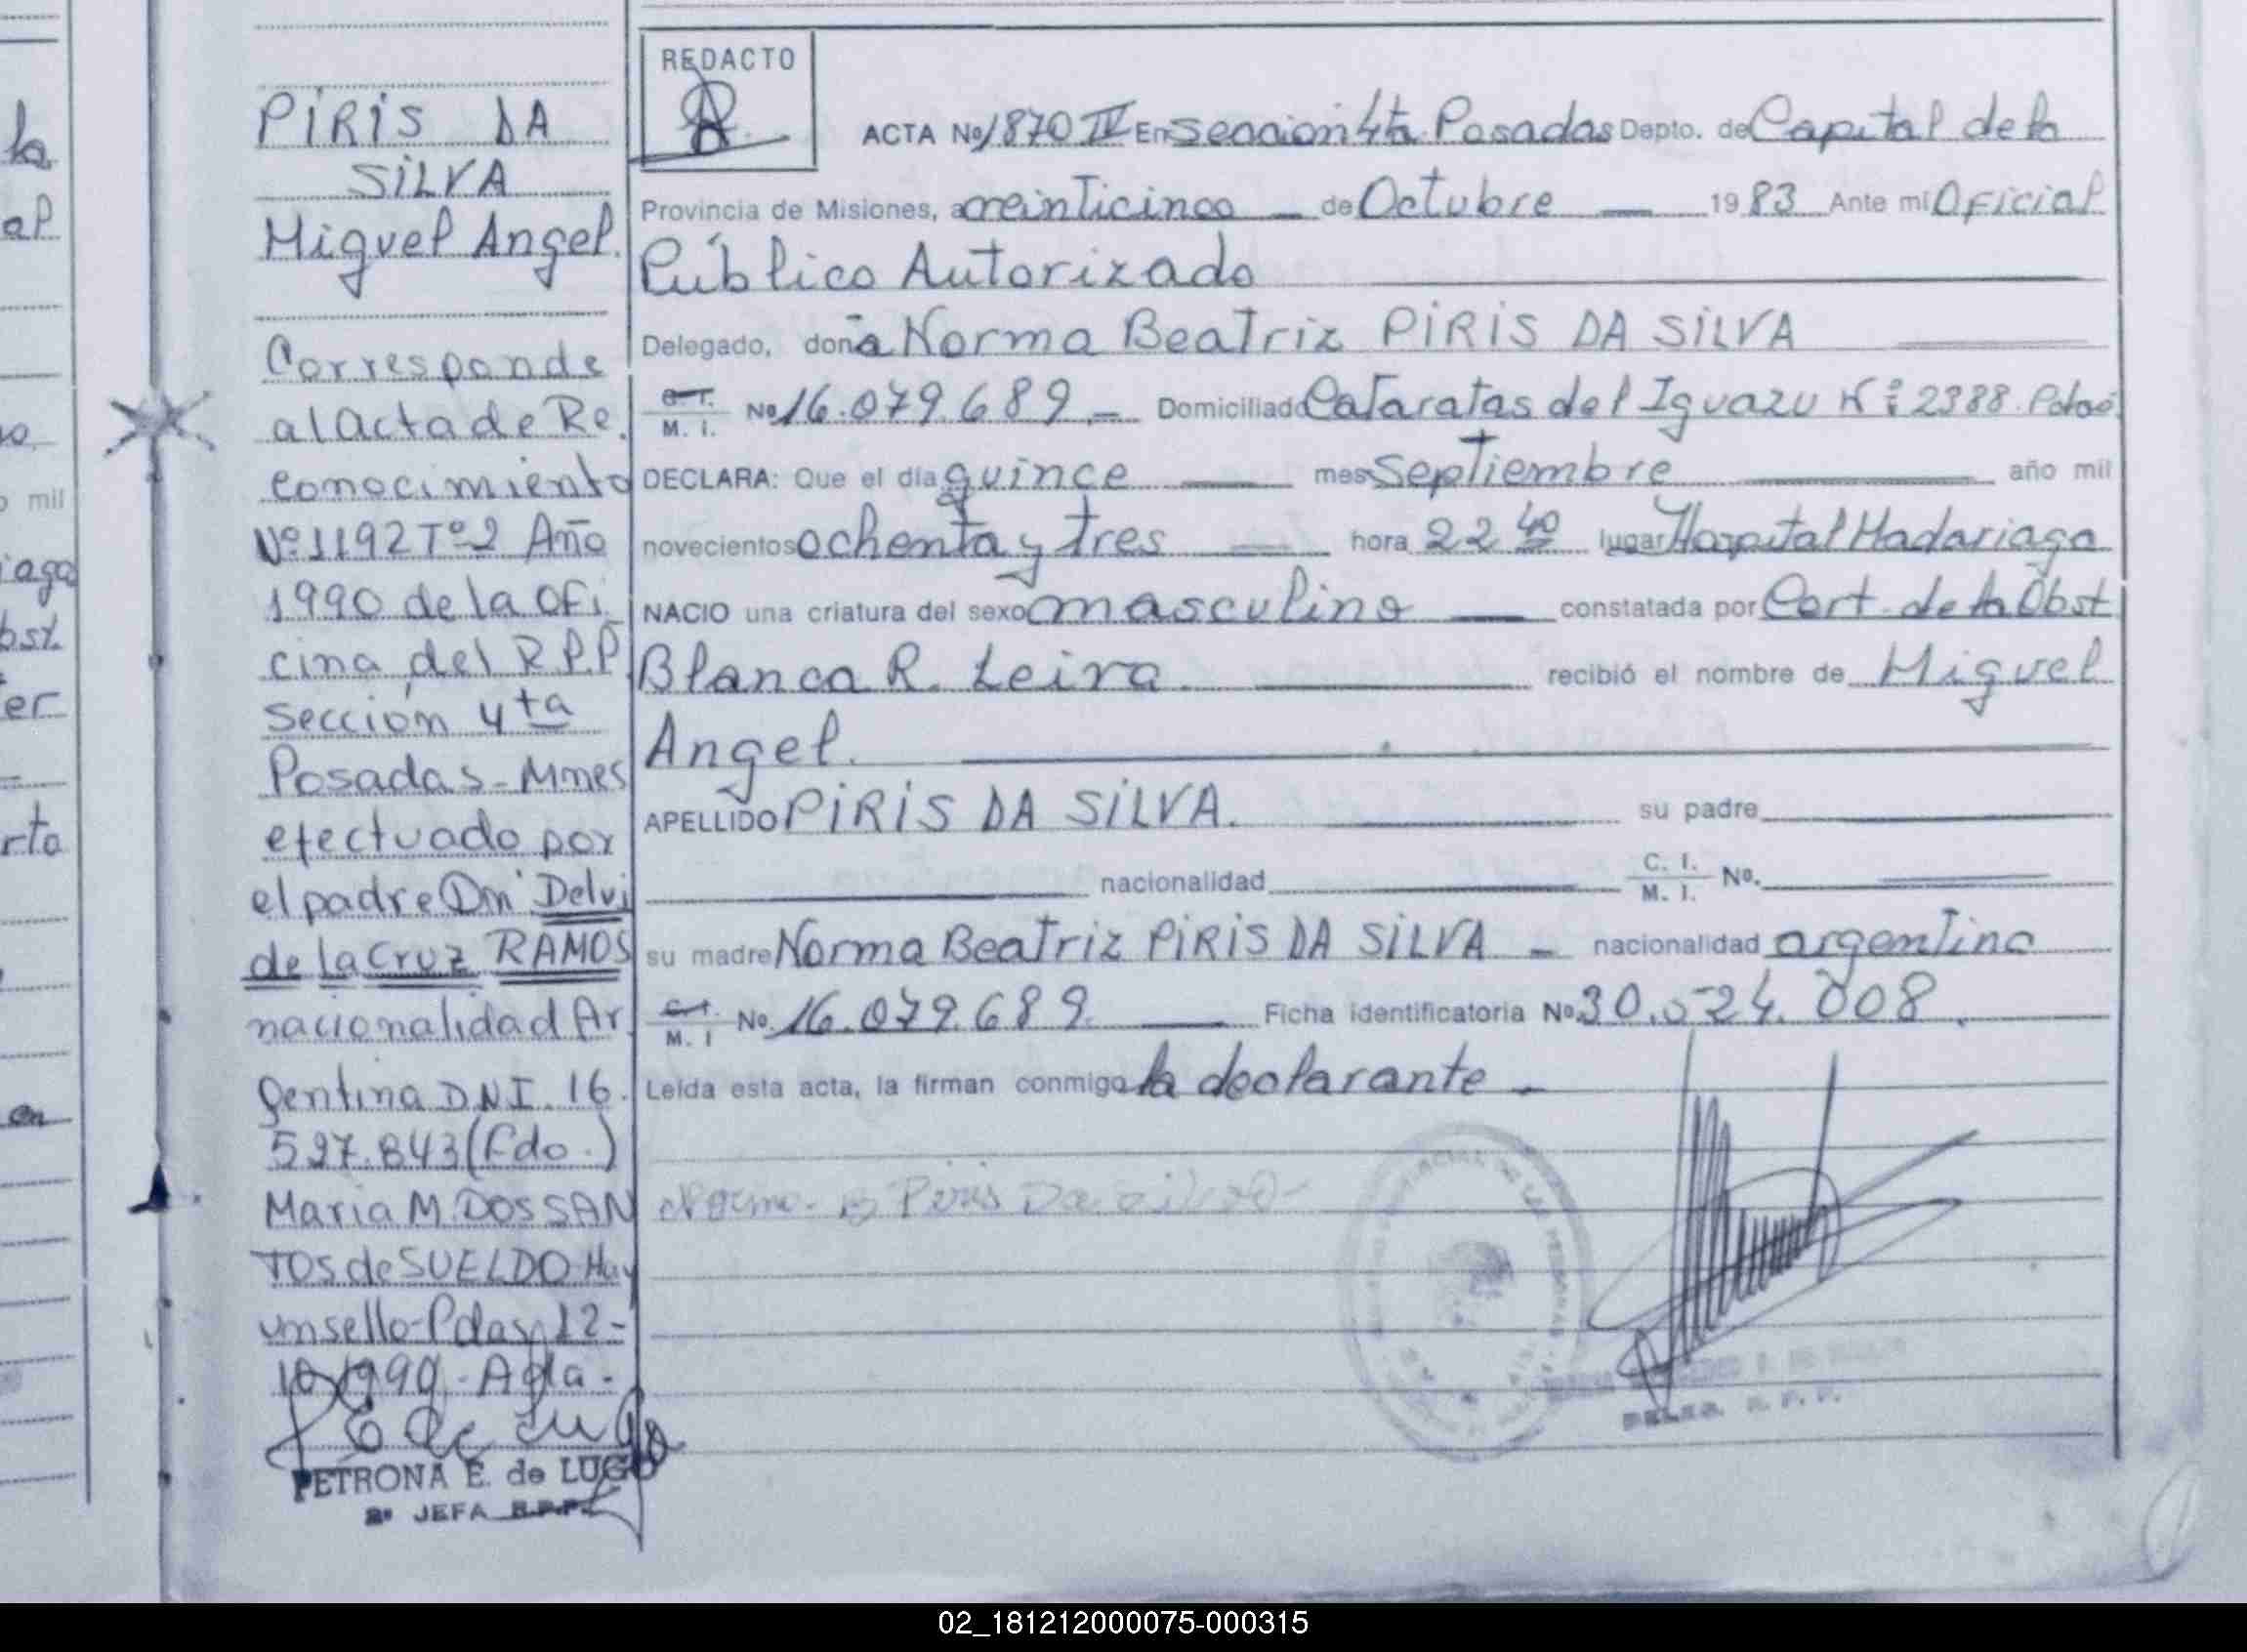 PIRIS DA
SILVA
Miguel Angel.
Corresponde
al Acta de Re
conocimiento
Nº 1192 Tº 2 Año
1990 de la Ofi
cina del R.P.P
Sección 4ta
Posadas - Mnes
efectuado por
el padre Dn Delvi
de la Cruz RAMOS
nacionalidad Ar
gentina DNI. 16.
527.843 (Fdo.)
Maria M. DOS SAN
TOS de SUELDO. Hay
un sello - Pdas, 12-
10/1990 -
PETRONA E. de LUGO
2º JEFA R.P.P.
REDACTO
ACTA Nº 1870 IV En sección 4ta. Posadas Depto. de Capital de la
Provincia de Misiones, a veinticinco de Octubre 1983 Ante mi Oficial
Público Autorizado
Delegado, doña Norma Beatriz PIRIS DA SILVA
C. I. M. I. Nº 16.079.689.- Domiciliado Cataratas del Iguazu Nº 2388.
DECLARA: Que el día quince mes Septiembre año mil
novecientos ochenta y tres hora 22 40 lugar Hospital Madariaga
NACIO una criatura del sexo masculino constatada por Cert. de la Obst
Blanca R. Leiva recibió el nombre de Miguel
Angel.
APELLIDO PIRIS DA SILVA. su padre
nacionalidad C. I. M. I. Nº.
su madre Norma Beatriz PIRIS DA SILVA - nacionalidad argentina
C. I. M. I Nº. 16.079.689. Ficha identificatoria Nº 30.524.008.
Leída esta acta, la firman conmigo la declarante -
Norma B Piris Da Silva
R. P. P.
la
al
o mil
iaga
bst.
er
rto
en
02_181212000075-000315